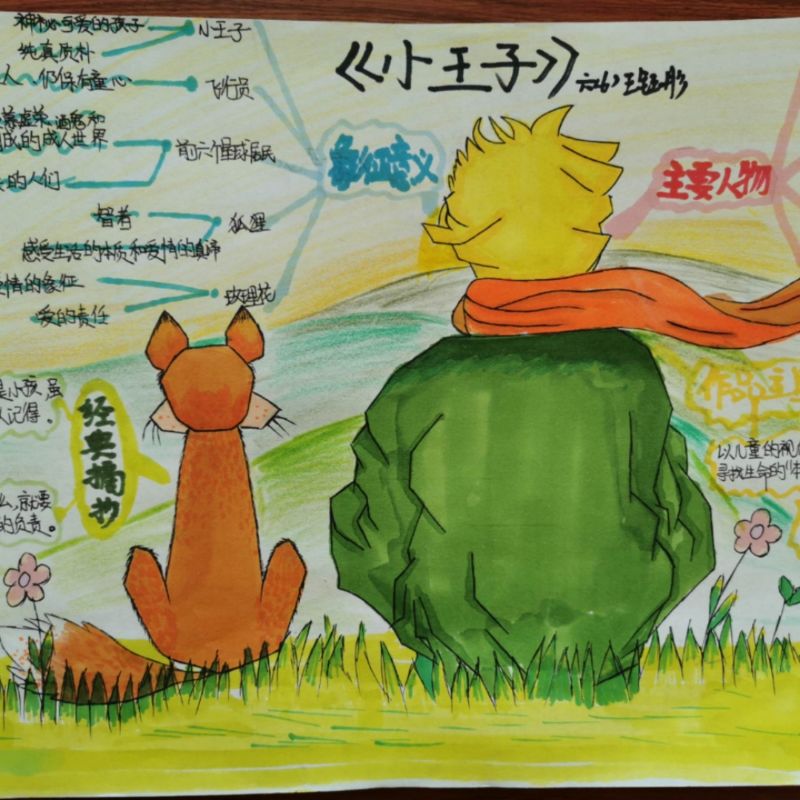 《小王子》
神秘可爱的孩子
小王子
纯真质朴
人 仍保有童心
飞行员
的成人世界
前六个星球居民
的人们
智者
狐狸
感受生活的本质和爱情的真谛
情的象征
玫瑰花
爱的责任
象征意义
主要人物
是小孩,虽
记得。
经典摘抄
么,就要
的负责。
作品主
以儿童的视
寻找生命的“本